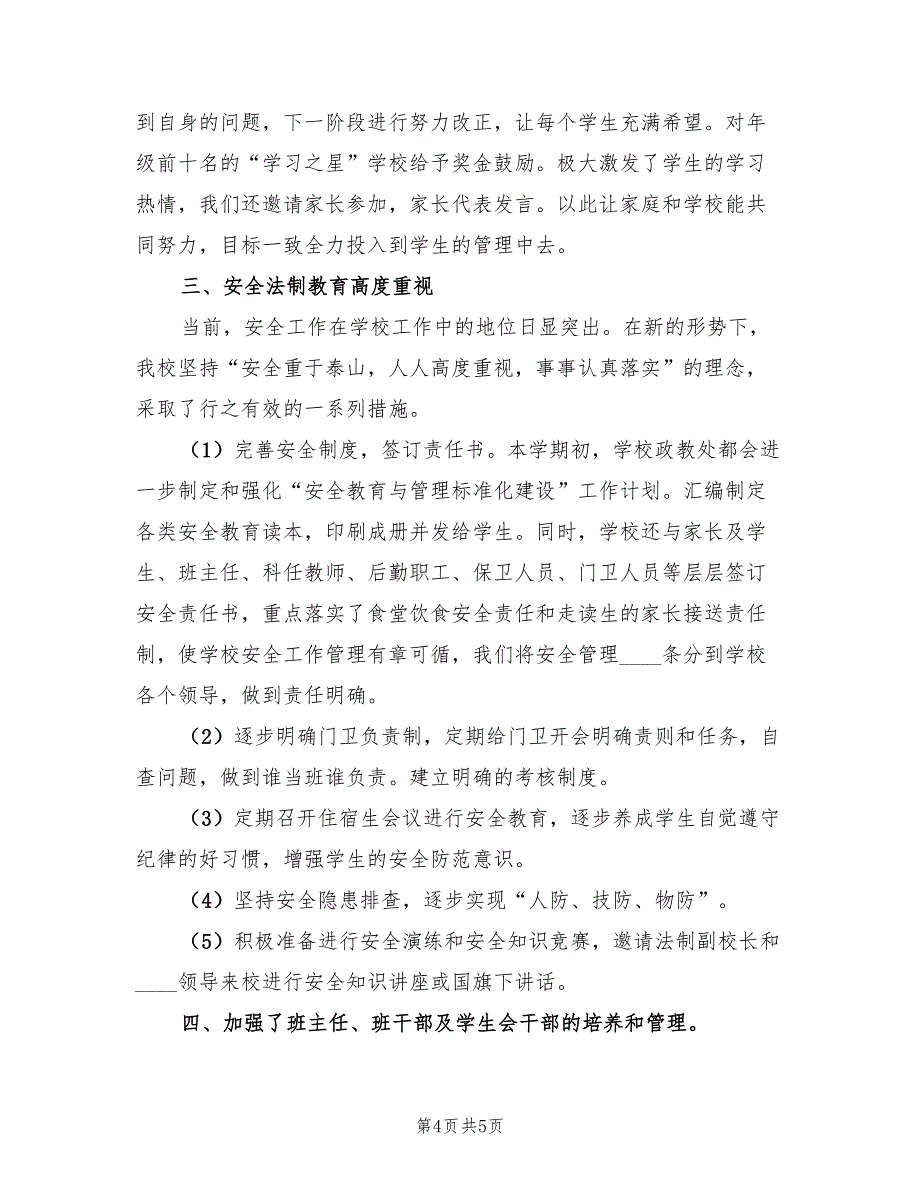 到自身的问题，下一阶段进行努力改正，让每个学生充满希望。对年
级前十名的“学习之星”学校给予奖金鼓励。极大激发了学生的学习
热情，我们还邀请家长参加，家长代表发言。以此让家庭和学校能共
同努力，目标一致全力投入到学生的管理中去。
三、安全法制教育高度重视
当前，安全工作在学校工作中的地位日显突出。在新的形势下，
我校坚持“安全重于泰山，人人高度重视，事事认真落实”的理念，
采取了行之有效的一系列措施。
（1）完善安全制度，签订责任书。本学期初，学校政教处都会进
一步制定和强化“安全教育与管理标准化建设”工作计划。汇编制定
各类安全教育读本，印刷成册并发给学生。同时，学校还与家长及学
生、班主任、科任教师、后勤职工、保卫人员、门卫人员等层层签订
安全责任书，重点落实了食堂饮食安全责任和走读生的家长接送责任
制，使学校安全工作管理有章可循，我们将安全管理____条分到学校
各个领导，做到责任明确。
（2）逐步明确门卫负责制，定期给门卫开会明确责则和任务，自
查问题，做到谁当班谁负责。建立明确的考核制度。
（3）定期召开住宿生会议进行安全教育，逐步养成学生自觉遵守
纪律的好习惯，增强学生的安全防范意识。
（4）坚持安全隐患排查，逐步实现“人防、技防、物防”。
（5）积极准备进行安全演练和安全知识竞赛，邀请法制副校长和
____领导来校进行安全知识讲座或国旗下讲话。
四、加强了班主任、班干部及学生会干部的培养和管理。
第4页共5页